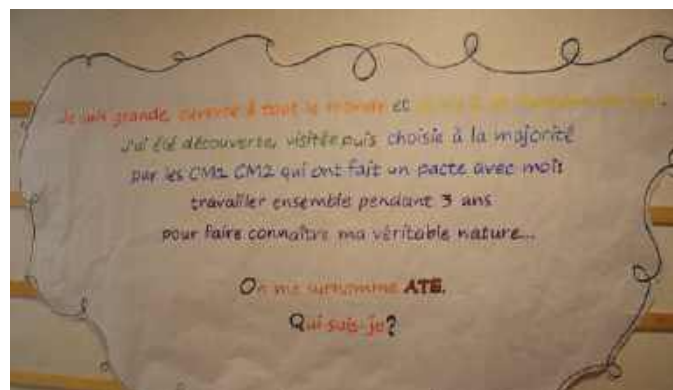 Je suis grande, ouverte à tout le monde et
J'ai été découverte, visitée puis choisie à la majorité
par les CM1 CM2 qui ont fait un pacte avec moi:
travailler ensemble pendant 3 ans
pour faire connaître ma véritable nature...
On me surnomme ATE.
Qui suis-je?